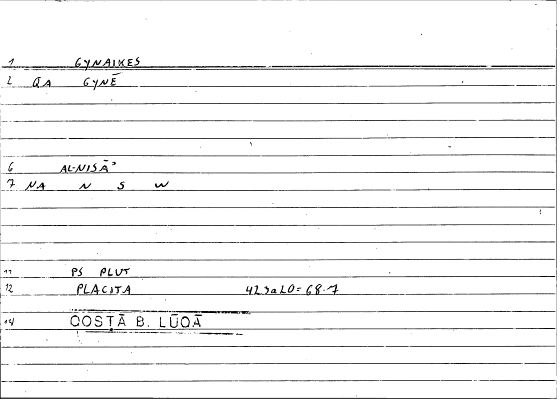 1 GYNAIKES
2 QA GYNĒ
6 AL-NISĀʾ
7 NA N S W
11 PS PLUT
12 PLACITA 423a20=68.7
14 QOSṬĀ B. LŪQĀ